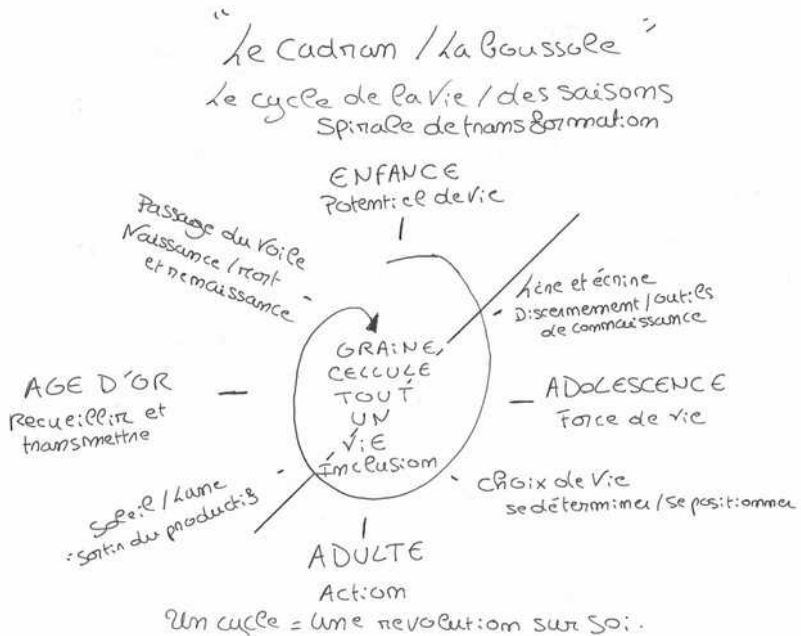 "Le Cadran / La boussole"
Le cycle de la vie / des saisons
Spirale de transformation
ENFANCE
Potentiel de vie
Passage du voile
Naissance / mort
et renaissance
Lire et écrire
Discernement / outils
de connaissance
GRAINE,
CELLULE
TOUT
UN
VIE
Inclusion
AGE D'OR
Recueillir et
transmettre
ADOLESCENCE
Force de vie
Soleil / Lune
: sortir du productif
Choix de vie
se déterminer / se positionner
ADULTE
Action
Un cycle = une revolution sur soi.